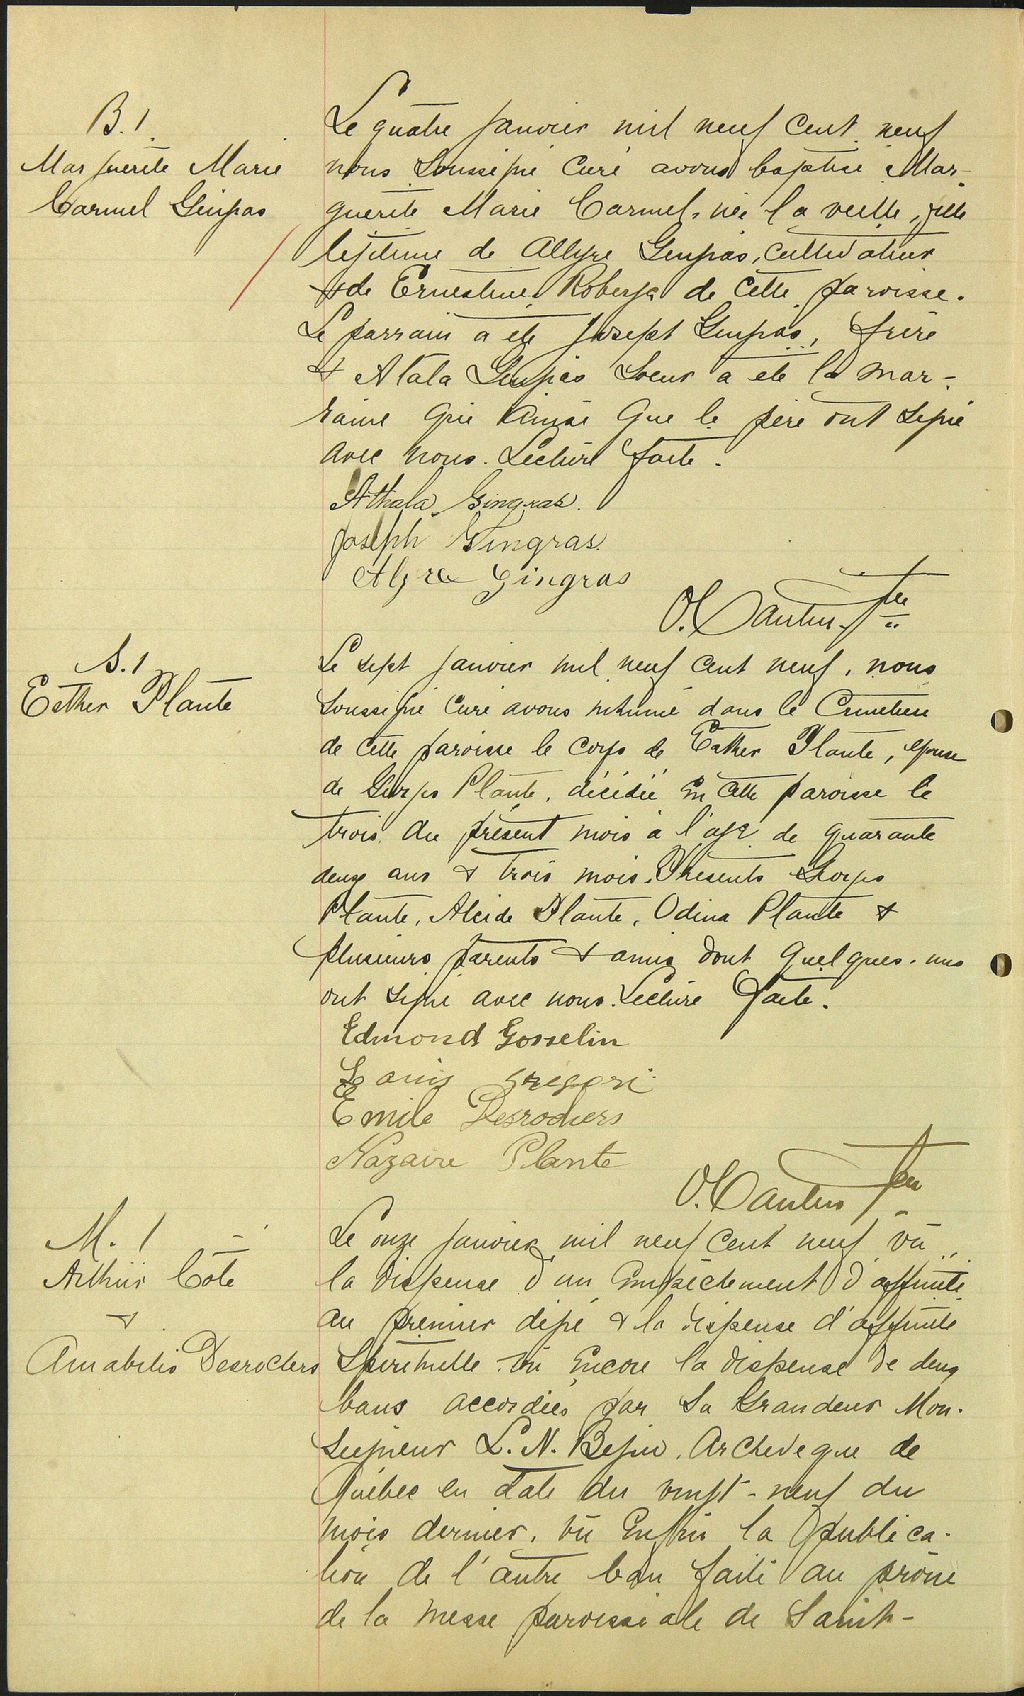 B. 1
Marguerite Marie
Carmel Gingras
Le quatre janvier mil neuf cent neuf
nous soussigné curé avons baptisé Mar-
guerite Marie Carmel, née la veille, fille
légitime de Allyre Gingras, cultivateur
& de Ernestine Roberge de cette paroisse.
Le parrain a été Joseph Gingras, frère
& Atala Gingras soeur a été la mar-
raine qui ainsi que le père ont signé
avec nous. Lecture faite.
Athala Gingras.
Joseph Gingras
Alyre Gingras
O. Cantin Ptre
S. 1
Esther Plante
Le sept janvier mil neuf cent neuf, nous
soussigné curé avons inhumé dans le cimetière
de cette paroisse le corps de Esther Plante, épouse
de Georges Plante, décédée en cette paroisse le
trois du présent mois à l'age de quarante
deux ans & trois mois. Présents Georges
Plante, Alcide Plante, Odina Plante &
plusieurs parents & amis dont quelques-uns
ont signé avec nous. Lecture faite.
Edmond Gosselin
Louis
Emile Desrochers
Nazaire Plante
O. Cantin Ptre
M. 1
Arthur Coté
&
Amabilis Desrochers
Le onze janvier mil neuf cent neuf vu
la dispense d'un empêchement d'affinité
au premier degré & la dispense d'affinité
spirituelle vu encore la dispense de deux
bans accordées par Sa Grandeur Mon-
seigneur L. N. Begin, Archevêque de
Québec en date du vingt-neuf du
mois dernier, vu enfin la publica-
tion de l'autre ban faite au prône
de la messe paroissiale de Saint-